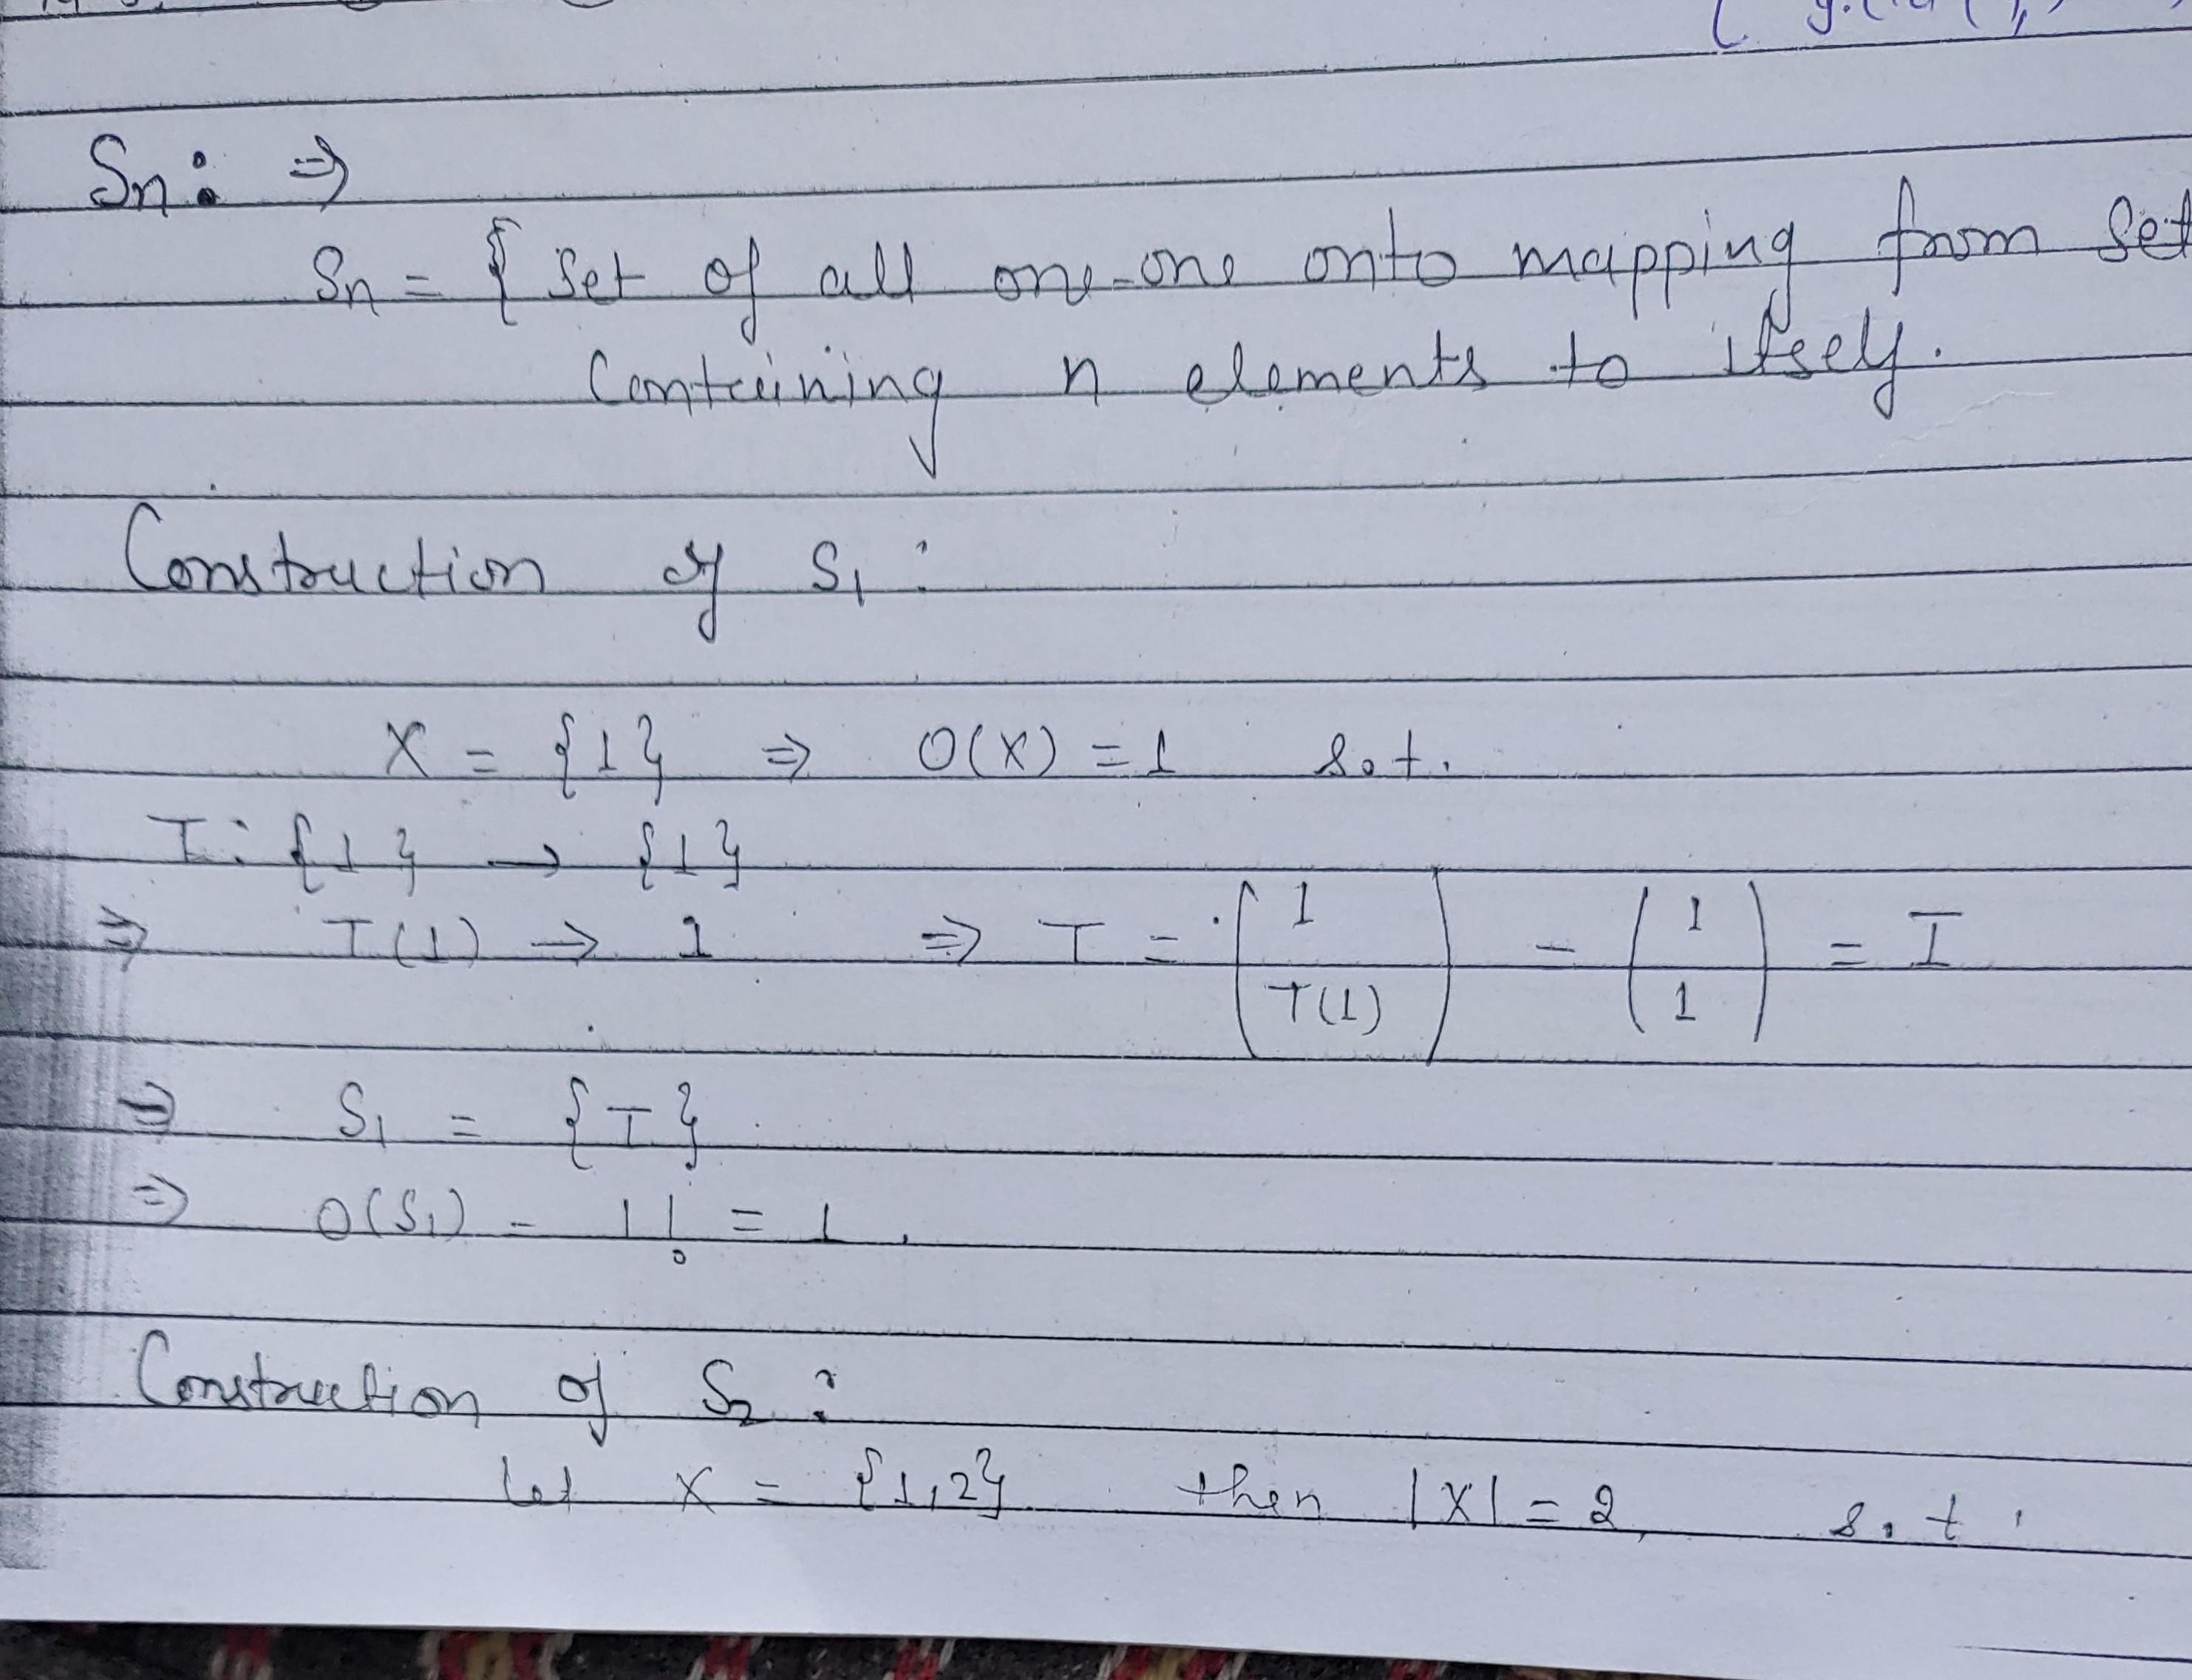 Sn: ⇒
Sn = { Set of all one-one onto mapping from Set
Containing n elements to itself.
Construction of S₁ :
X = {1} ⇒ O(X) = 1 s.t.
I: {1} → {1}
⇒ I(1) → 1 ⇒ I = (1 / I(1)) = (1 / 1) = I
⇒ S₁ = {I}
⇒ O(S₁) = 1! = 1.
Construction of S₂ :
Let X = {1,2} then |X| = 2, s.t.